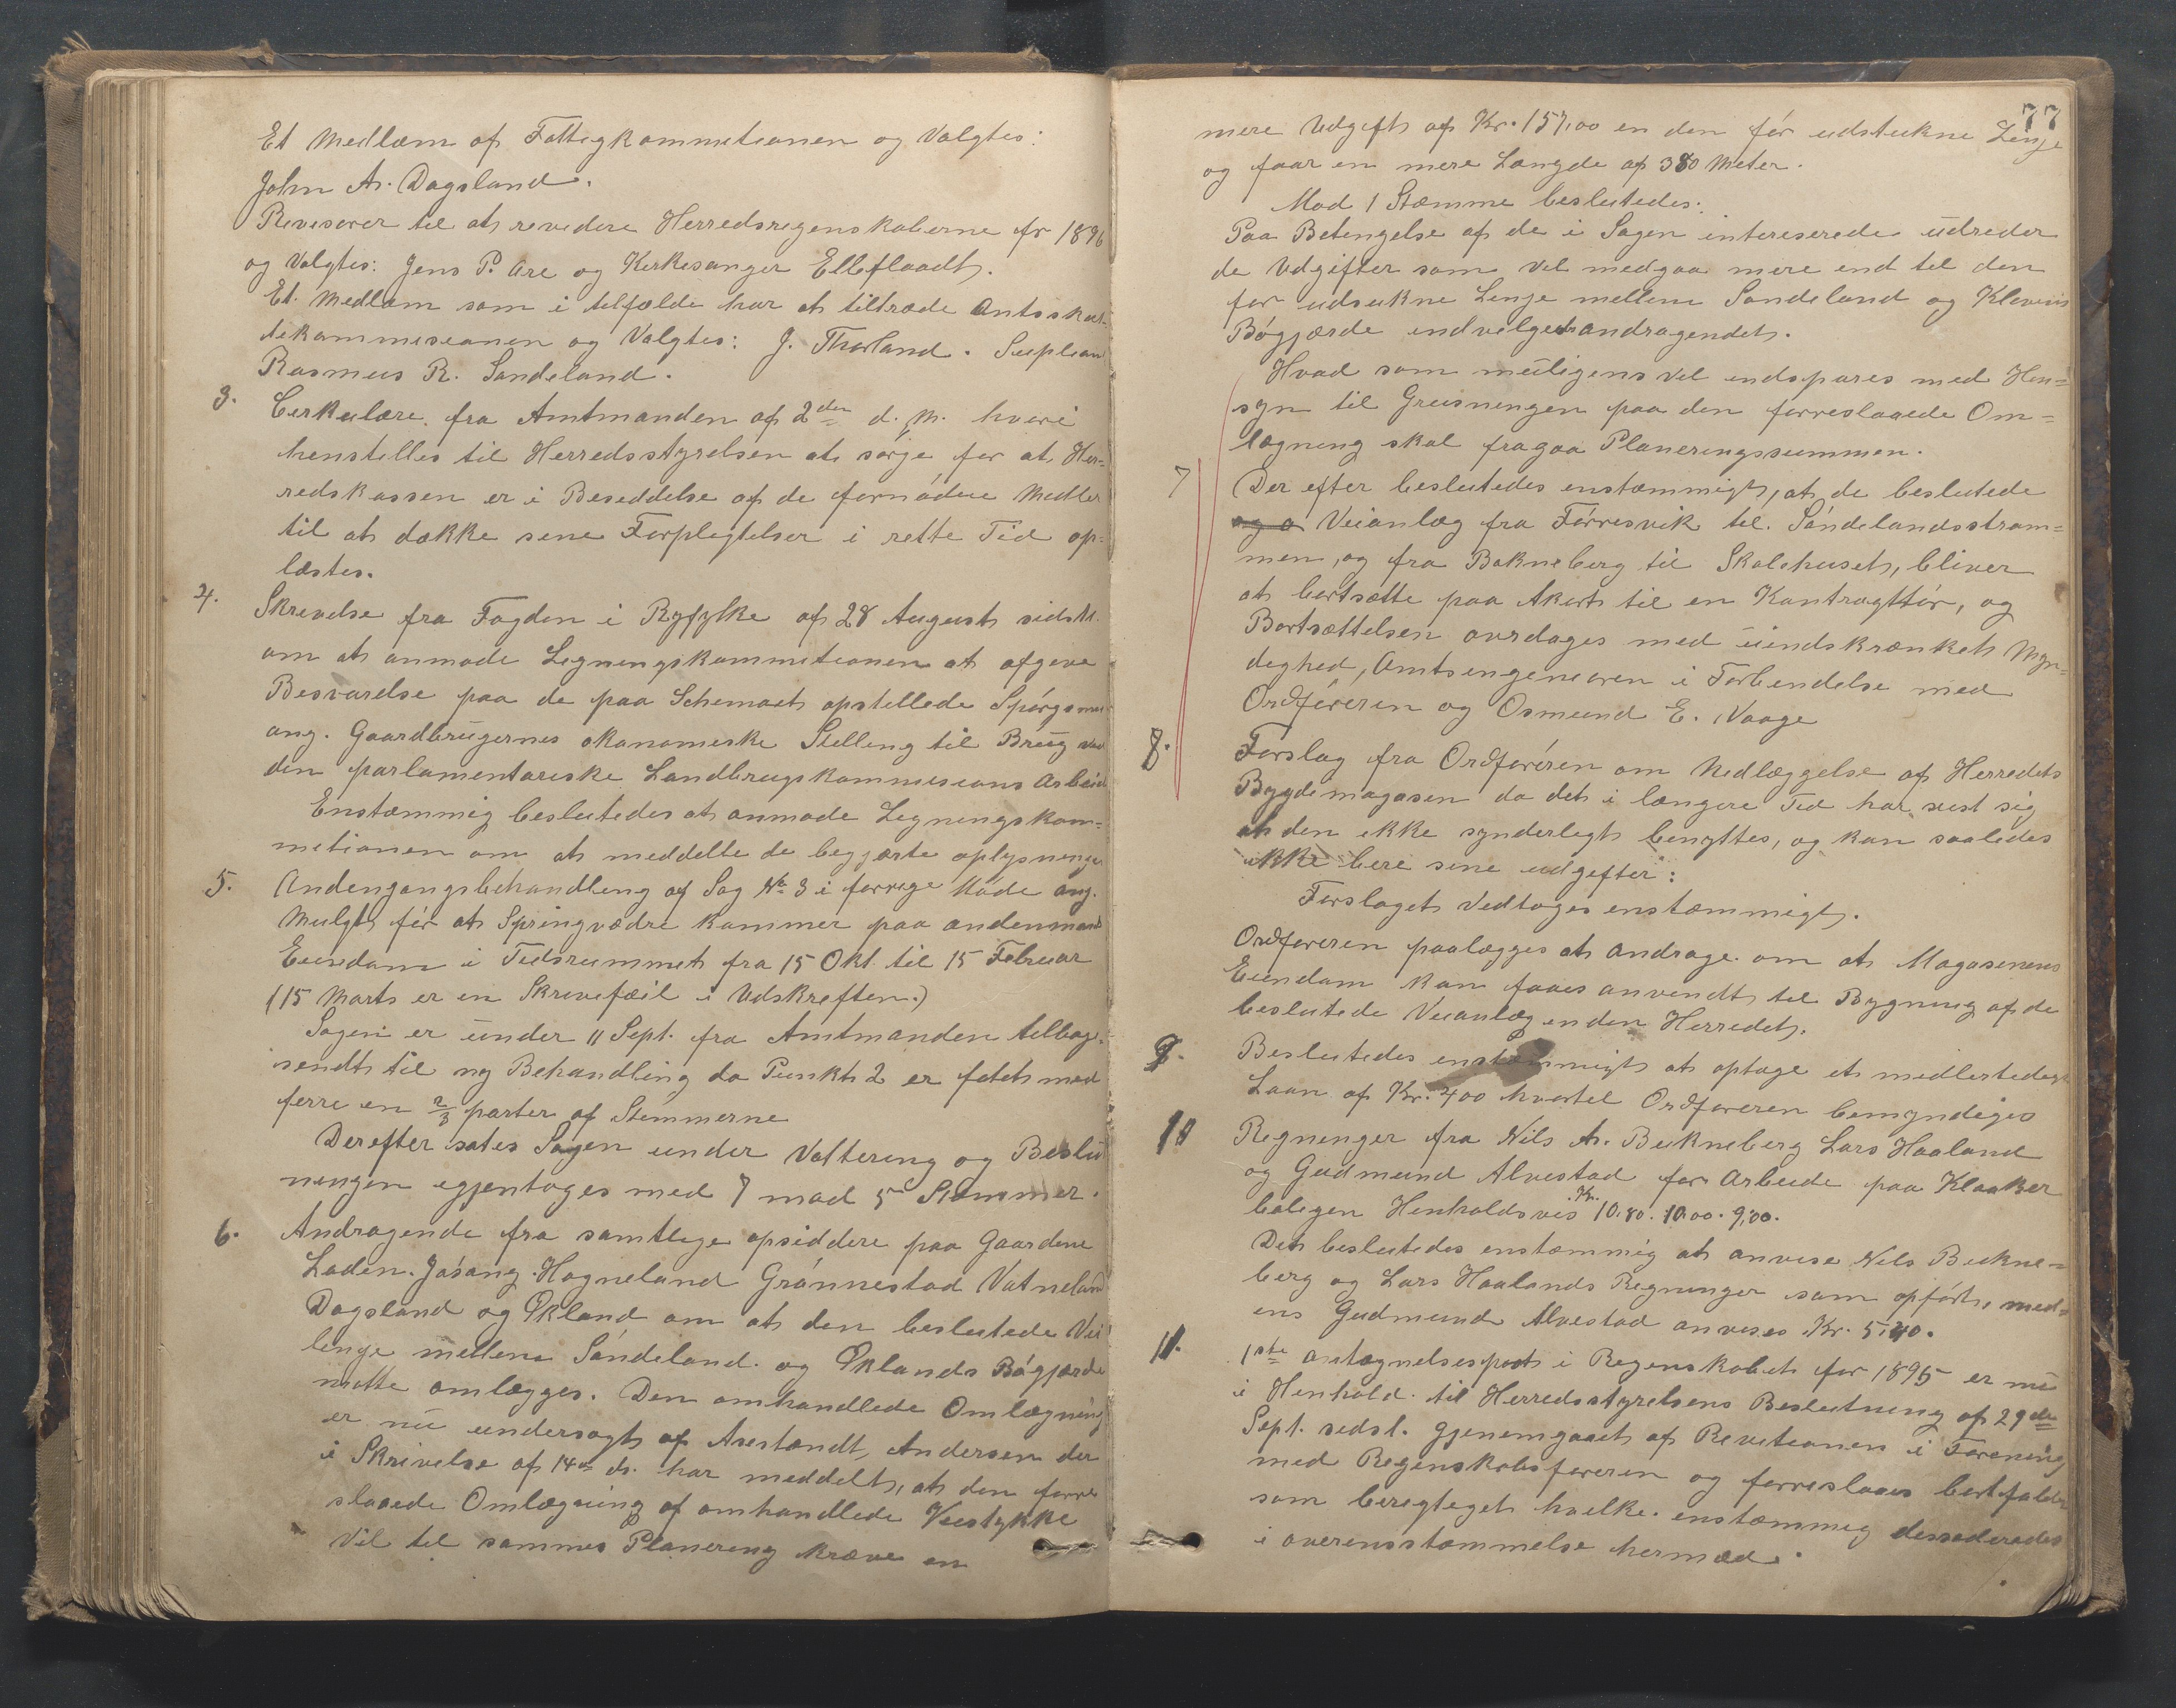 Et Medlæm af Fattigkommitionen og Valgtes:
John A. Dagsland.
Revisorer til at revidere Herredsregenskaberne for 1896
og Valgtes: Jens P. Are og Kirkesanger Elleflaadt.
Et Medlem som i tilfælde har at tiltræde Amtsskat-
tekommisionen og Valgtes: J. Thorland. Supleant
Rasmus R. Sandeland.
3. Cirkulære fra Amtmanden af 2den d. M. hvori
henstilles til Herredsstyrelsen at sørge for at Her-
redskassen er i Beseddelse af de fornødne Medler
til at dække sine Forplegtelser i rette Tid op-
læstes.
4. Skrivelse fra Fogden i Ryfylke af 28 August sidstl.
om at anmode Ligningskommitionen at afgive
Besvarelse paa de paa Schemaet opstillede Spørgsmaal
ang. Gaardbrugernes økonomiske Stelling til Brug ved
den parlamentariske Landbrugskommisions Arbeide
Enstæmmig beslutedes at anmode Legningskom-
mitionen om at meddelte de begjærte oplysninger
5. Andengangsbehandling af Sag No 3 i forrige Møde ang.
Mulgt før at Springvædre kommer paa andenmands
Eiendom i Tidsrummet fra 15 Okt. til 15 Februar
(15 Marts er en Skrivefæil i Udskreften.)
Sagen er under 11 Sept. fra Amtmanden tilbage-
sendt til ny Behandling da Punkt 2 er fatet med
ferre en 2/3 parter af Stemmerne
Derefter sates Sagen under Voltering og Beslut
ningen egjentages med 7 mod 5 Stæmmer.
6. Andragende fra samtlige opsiddere paa Gaardene
Laden. Jøsang. Hagneland Grønnestad Vatneland
Dagsland og Økland om at den besluttede Vei
linje mellem Søndeland og Øklands Bøgjærde
matte omlægges. Den omhandlede Omlægning
er nu undersøgt af Assistandt, Andersen der
i Skrivelse af 14de ds. har meddelt, at den forre
slaaede Omlægning af omhandlede Veistykke
Vil til sammes Planering kræve en
77
mere Udgift af Kr. 157,00 en den før udstukne Linje
og faar en mere Længde af 380 Meter.
Mod 1 Stæmme beslutedes:
Paa Betengelse af de i Sagen intereserede udreder
de Udgifter som Vil medgaa mere end til den
før udsukne Linje mellem Sandeland og Klovens
Bøgjærde indvilges andragendet.
Hvad som muligens Vil indspares med Hen-
syn til Grusningen paa den forreslaaede Om-
lægning skal fragaa Planeringssummen.
7 Der efter beslutedes enstæmmigt, at de beslutede
og a Veianlæg fra Førresvik til Søndelandsstrøm-
men, og fra Bokneberg til Skolehuset, bliver
at bortsætte paa Akort til en Kontragttør, og
Bortsættelsen overdages med uindskrænket Myn-
deghed, Amtsengeniøren i Forbendelse med
Ordføreren og Osmund E. Vaage
8. Forslag fra Ordførøren om Nedlæggelse af Herredets
Bygdemagasen da det i længere Tid har vist sig
at den ikke synderlegt benyttes, og kan saaledes
ikke bere sine udgefter:
Forslaget Vedtoges enstæmmigt.
Ordføreren paalægges at andrage om at Magasenens
Eiendom kan faaes anvendt til Bygning af de
beslutede Veianlæg enden Herredet.
9. Beslutedes enstæmmigt at optage et midlertidegt
Laan af Kr. 400 hvortil Ordføreren bemyndiges
10 Regninger fra Nils A. Bukneberg Lars Haaland
og Gudmund Alvestad for Arbeide paa Klokker
boligen Henholdsvis Kr. 10.80. 10.00. 9,00.
Det beslutedes enstæmmig at anvise Nils Bukne-
berg og Lars Haalands Regninger som opført, med-
ens Gudmund Alvestad anvises Kr. 5,40.
11. 1ste Antegnelsespost i Regenskabet for 1895 er nu
i Henhold til Herredsstyrelsens Beslutning af 29de
Sept. sidst. gjenemgaaet af Revitionen i Forening
med Regenskabsføreren og forreslaaes bortfalde
som beregtiget hvilke enstæmmig dessederedes
i overensstæmmelse hermed.